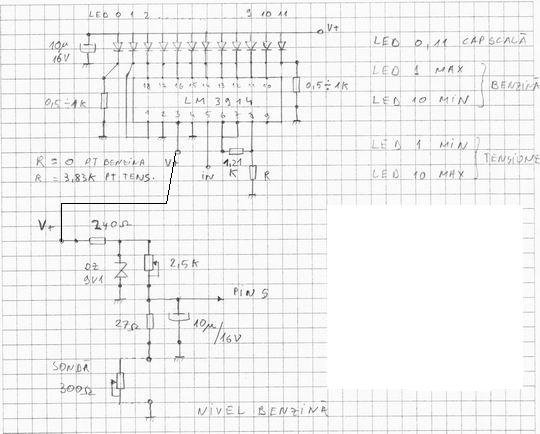 LED 0 1 2 9 10 11
V+
10µ
16V
LED 0,11 CAP SCALĂ
LED 1 MAX
BENZINĂ
LED 10 MIN
0,5÷1K
18 17 16 15 14 13 12 11 10
0,5÷1K
LM 3914
1 2 3 4 5 6 7 8 9
LED 1 MIN
TENSIONE
LED 10 MAX
R = 0 PT BENZINA
R = 3,83K PT TENS.
V+
IN
1,21
K
R
V+
240Ω
DZ
9V1
2,5K
PIN 5
27Ω
10µ/16V
SONDĂ
300Ω
NIVEL BENZINĂ